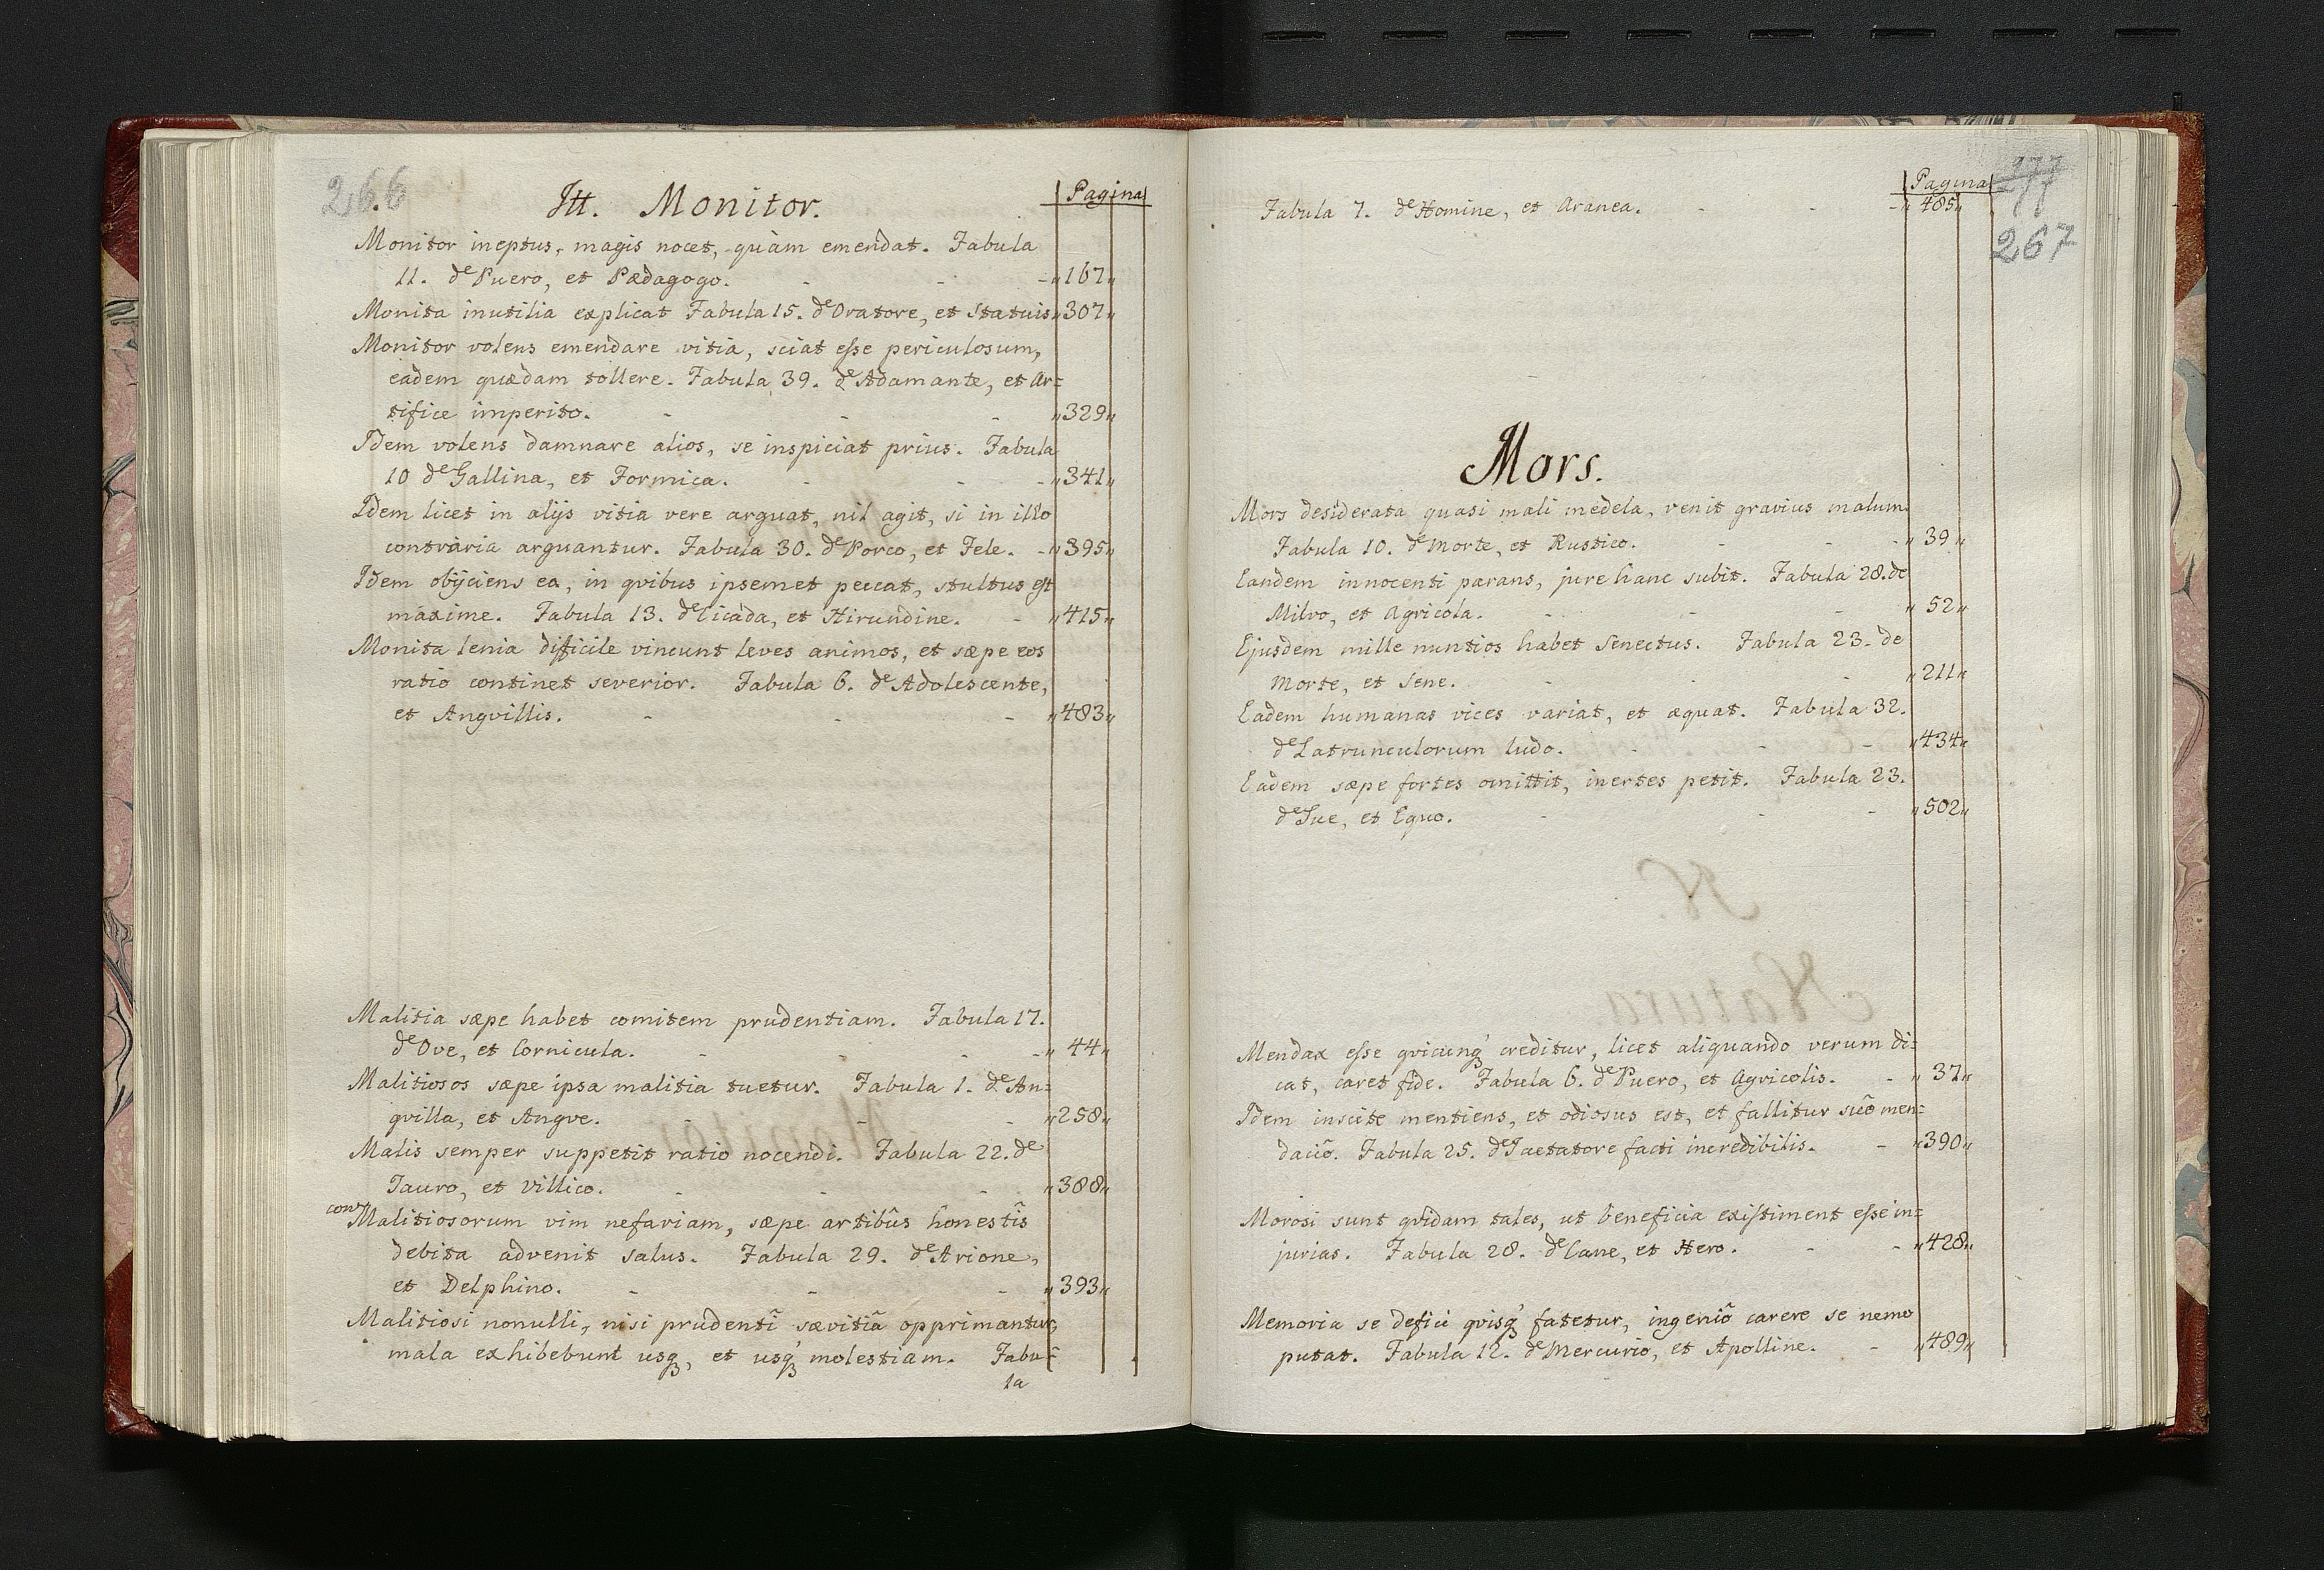 266
Itt. Monitor.
Pagina
Monitor ineptus, magis nocet, quàm emendat. Fabula
11. de Puero, et Pædagogo. - - - „167„
Monita inutilia explicat Fabula 15. de Oratore, et Statuis „307„
Monitor volens emendare vitia, sciat esse periculosum,
eadem quædam tollere. Fabula 39. de Adamante, et Ar=
tifice imperito. - - - „329„
Idem volens damnare alios, se inspiciat prius. Fabula
10 de Gallina, et Formica. - - - „341„
Idem licet in alijs vitia vere arguat, nil agit, si in illo
contraria arguantur. Fabula 30. de Porco, et Fele. - „395„
Idem obijciens ea, in qvibus ipsemet peccat, stultus est
maxime. Fabula 13. de Cicada, et Hirundine. - „415„
Monita lenia difficile vincunt leves animos, et sæpe eos
ratio continet severior. Fabula 6. de Adolescente,
et Angvillis. - - - „483„
Malitia sæpe habet comitem prudentiam. Fabula 17.
de Ove, et Cornicula. - - - - „44„
Malitiosos sæpe ipsa malitia tuetur. Fabula 1. de An=
gvilla, et Angve. - - - „258„
Malis semper suppetit ratio nocendi. Fabula 22. de
Tauro, et Villico. - - - „388„
Malitiosorum vim nefariam, sæpe artibûs honestîs
debita advenit salus. Fabula 29. de Arione,
et Delphino. - - - „393„
Malitiosi nonulli, nisi prudentî sævitiâ opprimantur,
mala exhibebunt usq, et usq' molestiam. Fabu=
la
Pagina
277
267
Fabula 7. de Homine, et Aranea. - - - „485„
Mors.
Mors desiderata quasi mali medela, venit gravius malum.
Fabula 10. de Morte, et Rustico. - - - „39„
Eandem innocenti parans, jure hanc subit. Fabula 28. de
Milvo, et Agricola. - - - „52„
Ejusdem mille nuntios habet Senectus. Fabula 23. de
Morte, et Sene. - - - „211„
Eadem humanas vices variat, et æquat. Fabula 32.
de Latrunculorum ludo. - - - „434„
Eadem sæpe fortes omittit, inertes petit. Fabula 23.
de Sue, et Equo. - - - „502„
Mendax esse qvicunq' creditur, licet aliquando verum di=
cat, caret fide. Fabula 6. de Puero, et Agricolis. - „37„
Idem inscite mentiens, et odiosus est, et fallitur suô men=
daciô. Fabula 25. de Jactatore facti incredibilis. - „390„
Morosi sunt qvidam tales, ut beneficia existiment esse in=
jurias. Fabula 28. de Cane, et Hero. - - „428„
Memoria se defici qvisq' fatetur, ingeniô carere se nemo
putat. Fabula 12. de Mercurio, et Apolline. - „489„